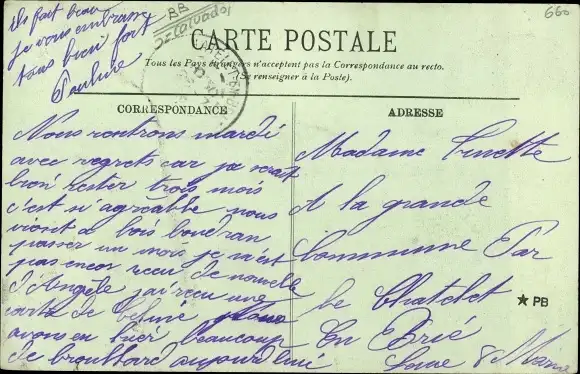 ils fait beau
je vous embrasse
tous bien fort
Pauline
BB
Calvados
660
CARTE POSTALE
Tous les Pays étrangers n'acceptent pas la Correspondance au recto.
(Se renseigner à la Poste).
CORRESPONDANCE
Nous rentrons mardi
avec regrets car je serait
bien rester trois mois
c'est si agréable nous
a bois
passer un mois je n'ai
pas encor recu de nouvelle
d'Angèle j'ai recu une
carte de nous
avons eu hier beaucoup
de brouillard aujourd'hui
ADRESSE
Madame
A la grande
Commune Par
le Chatelet
En Brie
Seine & Marne
★ PB